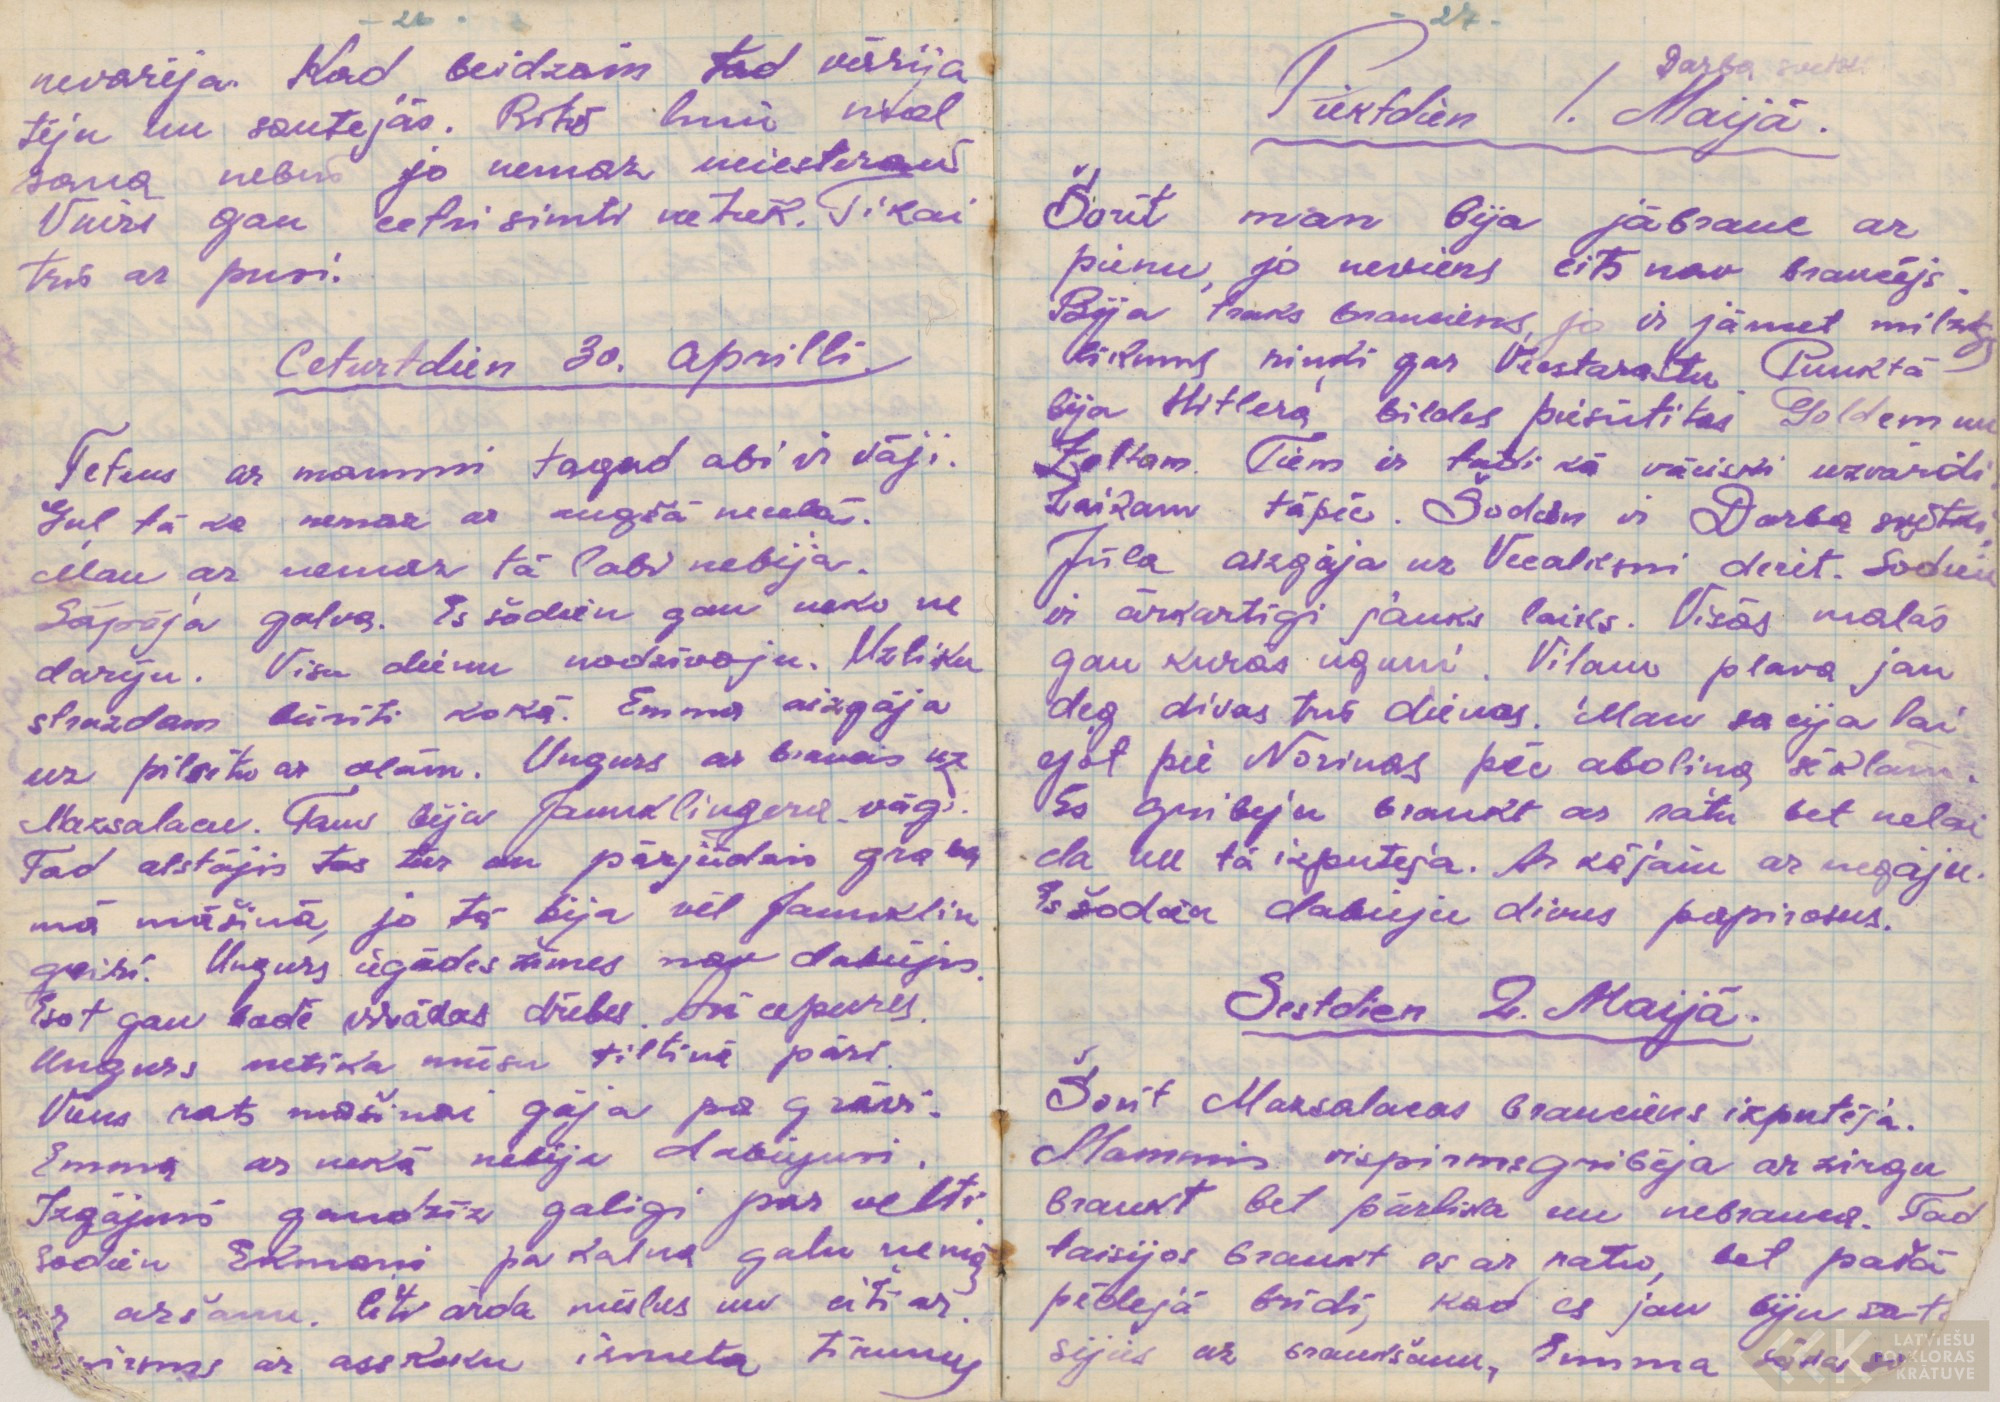 - 26 -
nevarēja. Kad beidzām tad vārīja
tēju un sautējās. Rītā
jo nemaz
Vairs gan četri simti netiek. Tikai
trīs ar pusi.
Ceturtdien 30. Aprillī.
Tētus ar mammi tagad abi ir vāji.
Guļ tā ka nemaz ar augšā neceļās.
Man ar nemaz tā labi nebija.
Sāpēja galva. Es šodien gan neko ne
darīju. Visu dienu nodzīvoju. Uzliku
strazdam būrīti kokā. Emma aizgāja
uz pilsētu ar olām. Ungurs ar braucis uz
Mazsalacu. Tam bija Jaunklingera vāgi.
Tad atstājis tos tur un pārjūdzis grava
mā māšinā, jo tā bija vēl Jaunklin
geiri. Ungurs ogādes zīmes nav dabūjis.
Esot gan kādē vivādas drēbes. Arī cepures.
Ungurs netika mūsu tiltiņā pāri.
Viens rats mašīnai gāja pa grāvi.
Emma ar nekā nebija dabūjusi.
Izgājusi gandrīz galīgi par velti.
Šodien Ekmaņi pa kalna galu
aršanu. Citi ārda mēslus un citi ar.
ar asskoku izmeta tīrumus
- 27 -
Darba svētki
Piektdien 1. Maijā.
Šorīt man bija jābrauc ar
pienu, jo neviens cits nav braucējs.
Bija traks brauciens, jo ir jāmet milzīgs
līkums rinķī gar Viestaratu. Punktā
bija Hitlera bildes piesūtītas Goldem un
Zaltam. Tiem ir tādi kā vāciski uzvārdi.
Laikam tāpēc. Šodien ir Darba svētki.
Jūla aizgāja uz Vecalksni derēt. Šodien
ir ārkārtīgi jauks laiks. Visās malās
gan kurās uguni. Vilanu pļava jau
deg divas trīs dienas. Man sacīja lai
ejot pie Noriņas pēc āboliņa sēklām.
Es gribēju braukt ar ratu bet nelai
da un tā izputēja. Ar kājām ar negāju.
Es šodien dabūju divus papirosus.
Sestdien 2. Maijā.
Šorīt Mazsalacas brauciens izputēja.
Mammis vispirms gribēja ar zirgu
braukt bet pārlika un nebrauca. Tad
taisījos braukt es ar ratu, bet pašā
pēdējā brīdī, kad es jau biju sa-tai
sījies uz braukšanu, Emma
LATVIEŠU
FOLKLORAS
KRĀTUVE